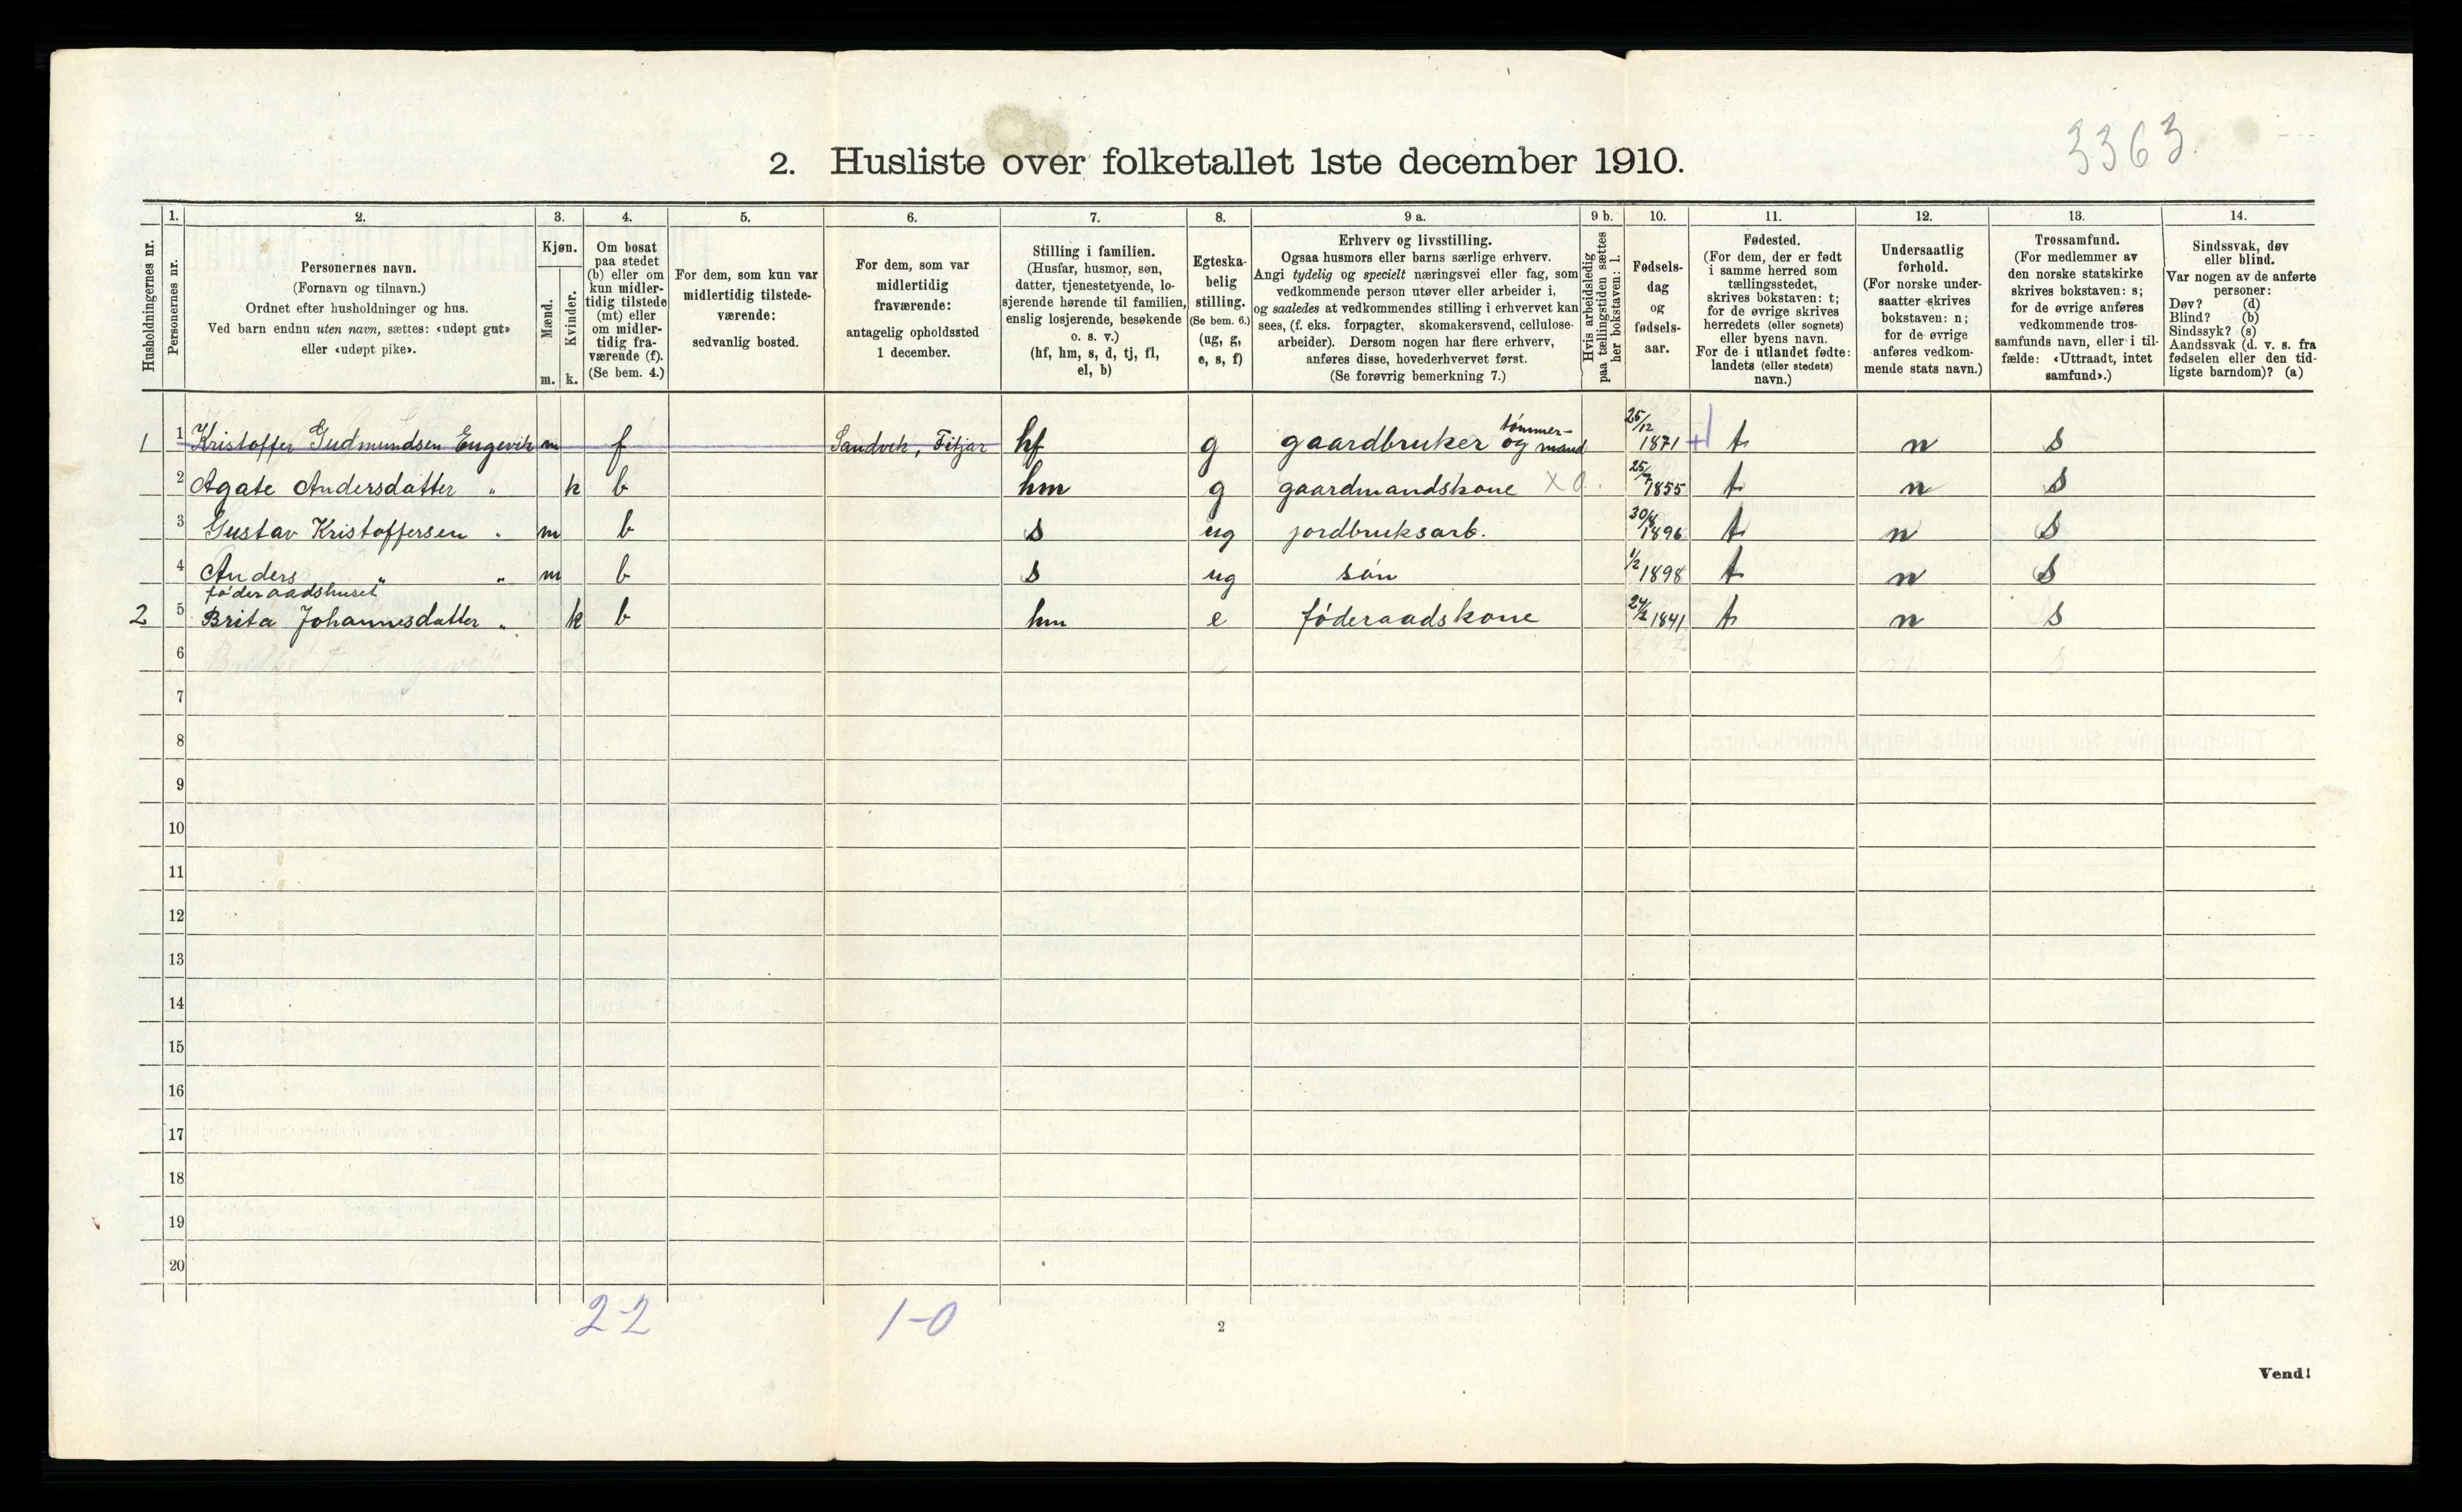 3363.
2. Husliste over folketallet 1ste december 1910.
Husholdningernes nr.
1.
Personernes nr.
2.
Personernes navn.
(Fornavn og tilnavn.)
Ordnet efter husholdninger og hus.
Ved barn endnu uten navn, sættes: «udøpt gut»
eller «udøpt pike».
3.
Kjøn.
Mænd.
Kvinder.
m. k.
4.
Om bosat
paa stedet
(b) eller om
kun midler-
tidig tilstede
(mt) eller
om midler-
tidig fra-
værende (f).
(Se bem. 4.)
5.
For dem, som kun var
midlertidig tilstede-
værende:
sedvanlig bosted.
6.
For dem, som var
midlertidig
fraværende:
antagelig opholdssted
1 december.
7.
Stilling i familien.
(Husfar, husmor, søn,
datter, tjenestetyende, lo-
sjerende hørende til familien,
enslig losjerende, besøkende
o. s. v.)
(hf, hm, s, d, tj, fl,
el, b)
8.
Egteska-
belig
stilling.
(Se bem. 6.)
(ug, g,
e, s, f)
9 a.
Erhverv og livsstilling.
Ogsaa husmors eller barns særlige erhverv.
Angi tydelig og specielt næringsvei eller fag, som
vedkommende person utøver eller arbeider i,
og saaledes at vedkommendes stilling i erhvervet kan
sees, (f. eks. forpagter, skomakersvend, cellulose-
arbeider). Dersom nogen har flere erhverv,
anføres disse, hovederhvervet først.
(Se forøvrig bemerkning 7.)
9 b.
Hvis arbeidsledig
paa tællingstiden sættes
her bokstaven: l.
10.
Fødsels-
dag
og
fødsels-
aar.
11.
Fødested.
(For dem, der er født
i samme herred som
tællingsstedet,
skrives bokstaven: t;
for de øvrige skrives
herredets (eller sognets)
eller byens navn.
For de i utlandet fødte:
landets (eller stedets)
navn.)
12.
Undersaatlig
forhold.
(For norske under-
saatter skrives
bokstaven: n;
for de øvrige
anføres vedkom-
mende stats navn.)
13.
Trossamfund.
(For medlemmer av
den norske statskirke
skrives bokstaven: s;
for de øvrige anføres
vedkommende tros-
samfunds navn, eller i til-
fælde: «Uttraadt, intet
samfund».)
14.
Sindssvak, døv
eller blind.
Var nogen av de anførte
personer:
Døv? (d)
Blind? (b)
Sindssyk? (s)
Aandssvak (d. v. s. fra
fødselen eller den tid-
ligste barndom)? (a)
1 1 Kristoffer Gudmundsen Engevik m f Sandvik, Fitjar hf g gaardbruker og tømmer-mand 25/12 1871 t n s
2 Agate Andersdatter " k b hm g gaardmandskone X 0. 25/7 1855 t n s
3 Gustav Kristoffersen " m b s ug jordbruksarb. 30/8 1896 t n s
4 Anders " " m b s ug søn 1/2 1898 t n s
føderaadshuset
2 5 Brita Johannesdatter " k b hm e føderaadskone 24/2 1841 t n s
6
7
8
9
10
11
12
13
14
15
16
17
18
19
20
2-2 1-0
2
Vend!